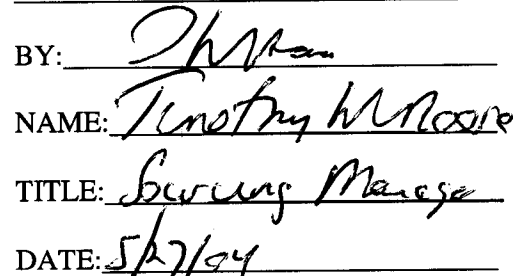 BY:
NAME: Timothy W Moore
TITLE: Sourcing Manager
DATE: 5/27/04